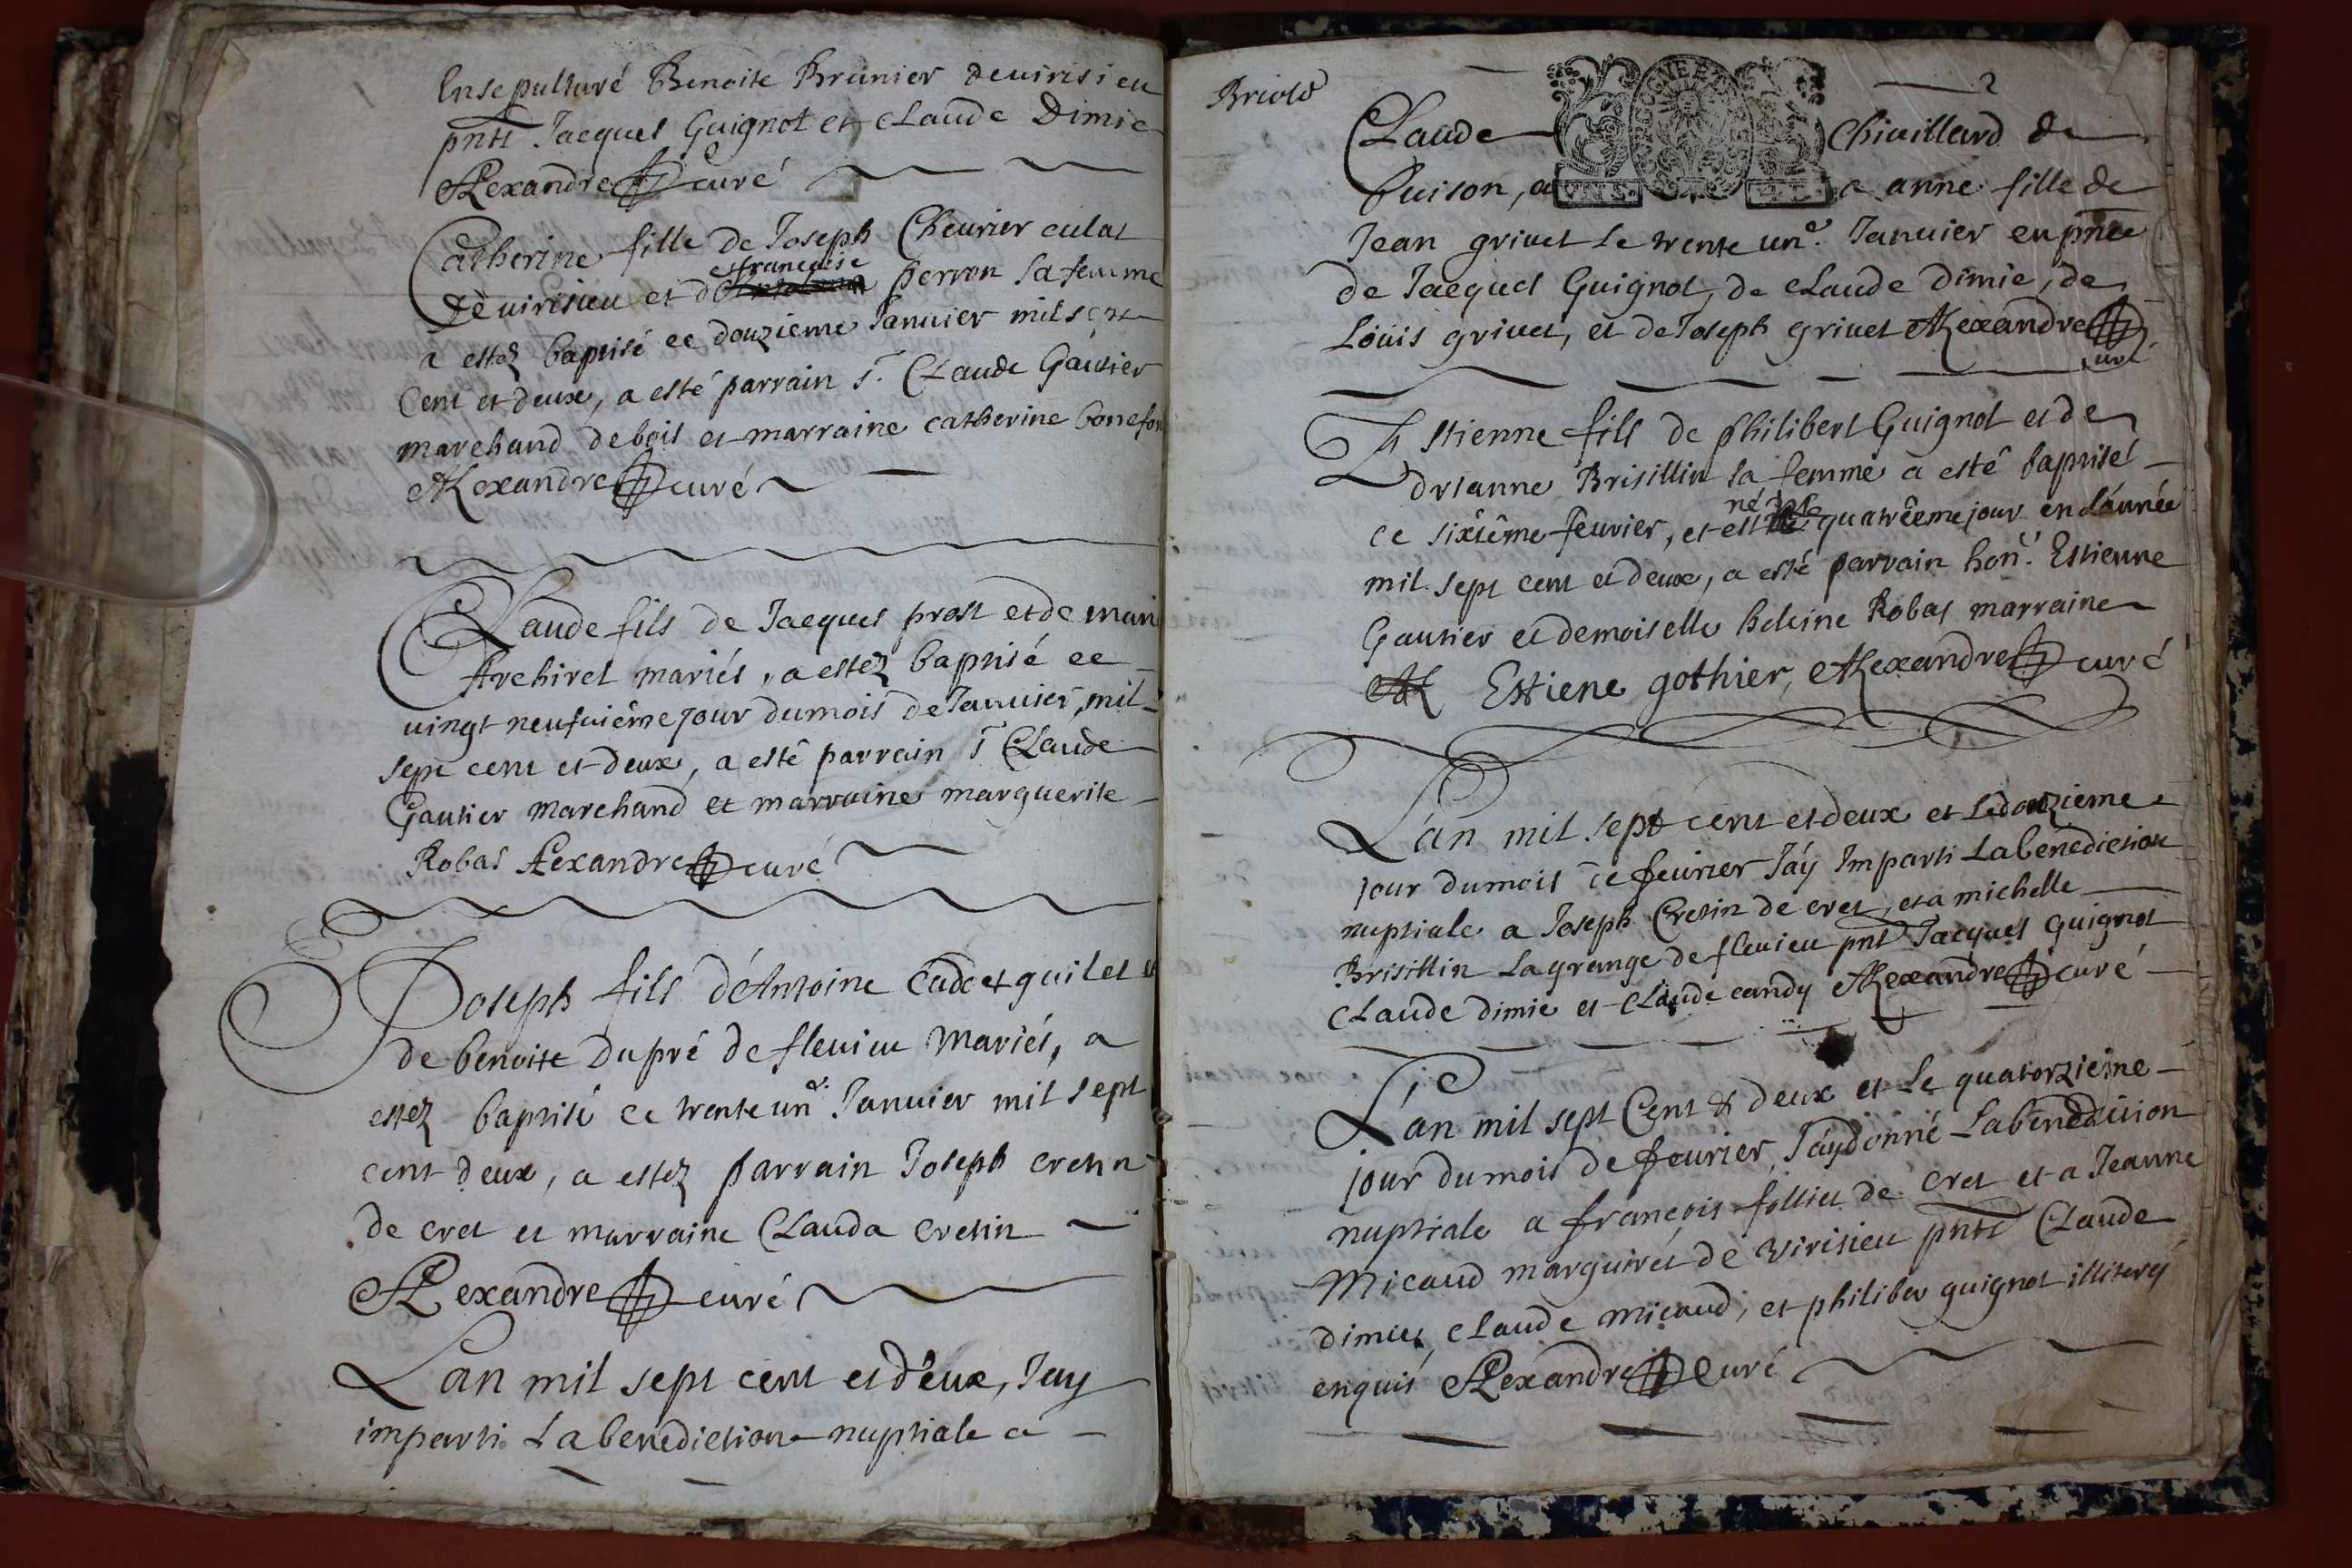 Ensepulturé Benoite Brunier de virisieu
pnts Jacques Guignot et Claude Dimie
Alexandre curé
Catherine fille de Joseph Cheurier culat
De virisieu et d françoise perron sa femme
a estez baptisé ce douzieme Januier mil sept
Cent et deux, a esté parrain s. Claude Gautier
marchand de bois et marraine catherine bonefon
Alexandre curé
Claude fils de Jacques prost et de mari
Archiret mariés, a estez baptisé ce
uingt neufuiême jour du mois de Januier, mil
sept cent et deux, a esté parrain s Claude
Gautier marchand et marraine marguerite
Robas Alexandre curé
Joseph fils d'Antoine Cadet guilet et
de benoite Dupré de fleuieu Mariés, a
estez baptisé ce trente un.e Januier mil sept
cent deux, a estez parrain Joseph cretin
de cret et marraine Clauda cretin
Alexandre curé
Lan mil sept cent et deux, Jay
imparti La benediction nuptiale a
2
Claude Chiuillard de
Cuison, a a anne fille de
Jean griuet le trente un.e Januier en pnce
de Jacques Guignot, de Claude Dimie, de
Louis griuet, et de Joseph griuet Alexandre
curé
Estienne fils de Philibert Guignot et de
drianne Brisillin sa femme a esté baptisé
ce sixiême feurier, et est né le quatrêeme jour en L'année
mil sept cent et deux, a esté parrain hon. Estienne
Gautier et demoiselle heleine Robas marraine
Estiene gothier, Alexandre curé
L'an mil sept cent et deux et Le douzieme
jour du mois de feurier J'ay Imparti La benediction
nuptiale a Joseph Cretin de cret, et a michelle
Brisillin Lagrange de fleuieu pnts Jacques Guignot
Claude Dimie et Claude candy Alexandre curé
L'an mil sept Cent & deux et Le quatorzieme
jour du mois de feurier, J'ay donné La benediction
nuptiale a françois folliet de Cret et a Jeanne
Micaud marguiret de virisieu pnts Claude
Dimie, Claude micaud, et philiber guignot illiterés
enquis Alexandre Curé